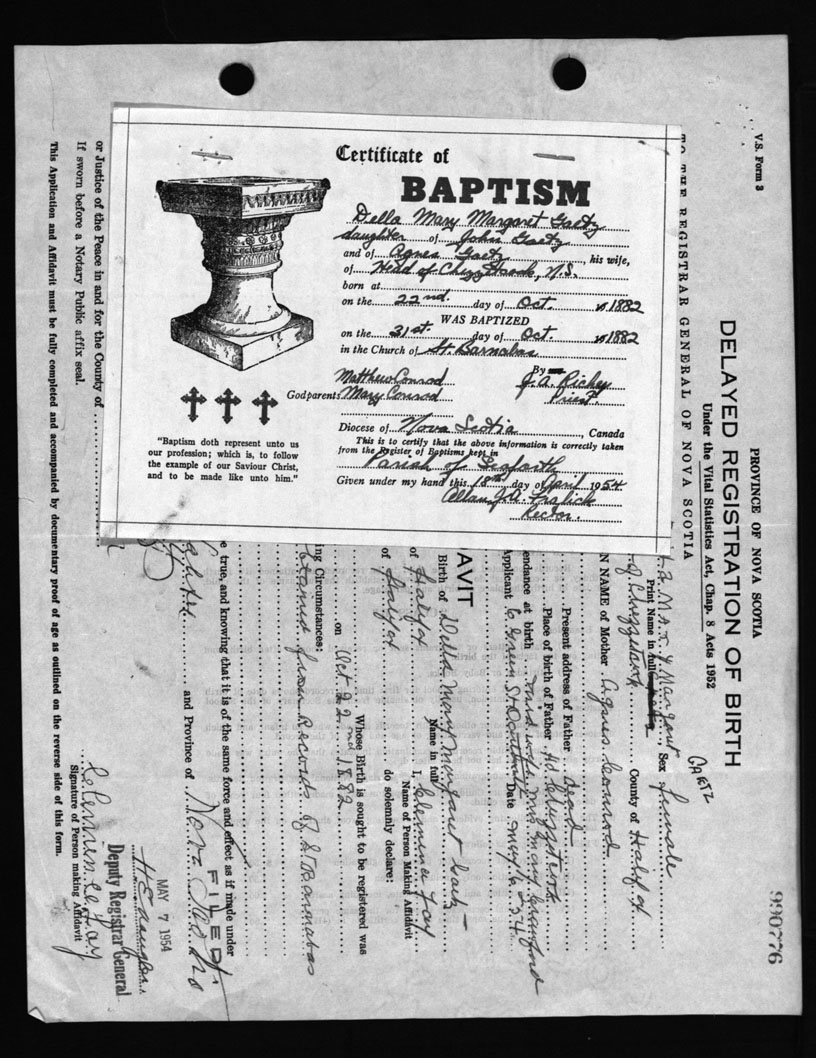 Certificate of
BAPTISM
Della Mary Margaret Gaetz
daughter of John Gaetz
and of Agnes Gaetz, his wife,
of Head of Chezzetcook, N.S.
born at
on the 22nd. day of Oct. 1882
WAS BAPTIZED
on the 31st. day of Oct. 1882
in the Church of St. Barnabas
By
Matthew Conrod J.A. Richey
Godparents Mary Conrod Priest.
Diocese of Nova Scotia, Canada
This is to certify that the above information is correctly taken
from the Register of Baptisms kept in
Parish of Seaforth
Given under my hand this 18th day of April 1954
Allan J.A. Fralick
Rector.
"Baptism doth represent unto us
our profession; which is, to follow
the example of our Saviour Christ,
and to be made like unto him."
V.S. Form 3
990776
PROVINCE OF NOVA SCOTIA
DELAYED REGISTRATION OF BIRTH
Under the Vital Statistics Act, Chap. 8 Acts 1952
TO THE REGISTRAR GENERAL OF NOVA SCOTIA
GAETZ
Mary Margaret Sex female
Print Name in full
Chezzetcook County of Halifax
N NAME of Mother Agnes Conrod
Present address of Father dead
Place of birth of Father Hd Chezzetcook
endance at birth mid wife Mrs Mary Crawford
Applicant 6 Green St Dartmouth Date May 6 54
AVIT
Birth of Della Mary Margaret Gaetz
Name in full
of Halifax I, Clemina Fay
Name of Person Making Affidavit
of Halifax do solemnly declare:
Whose Birth is sought to be registered was
on Oct 22nd 1882
ing Circumstances:
from Records of St Barnabas
e true, and knowing that it is of the same force and effect as if made under
FILED
and Province of Nova Scotia
MAY 7 1954
Deputy Registrar General
Signature of Person making Affidavit
or Justice of the Peace in and for the County of
If sworn before a Notary Public affix seal.
This Application and Affidavit must be fully completed and accompanied by documentary proof of age as outlined on the reverse side of this form.